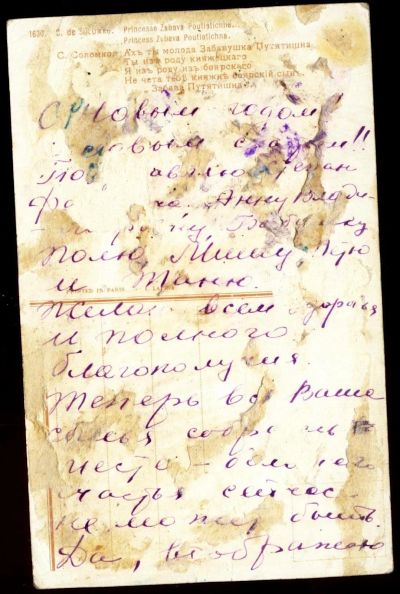 1630. S. de SOLOMKO. Princesse Zabava Poutiatichne.
Princess Zabava Poutiatichna.
С. Соломко. Ахъ ты молода Забавушка Путятишна
Ты изъ роду княжецкаго
Я изъ роду боярскаго
Не чета твой княжнѣ боярскій сынъ.
Забава Путятишна.
С Новым годом
новым счастьем!!
Анну Влади-
Бабушку
Полю, Мишу,
и Таню.
PRINTED IN PARIS
всем здоровья
и полного
благополучия.
Теперь вся Ваша
семья
вместе –
счастья сейчас
не может быть.
Да,